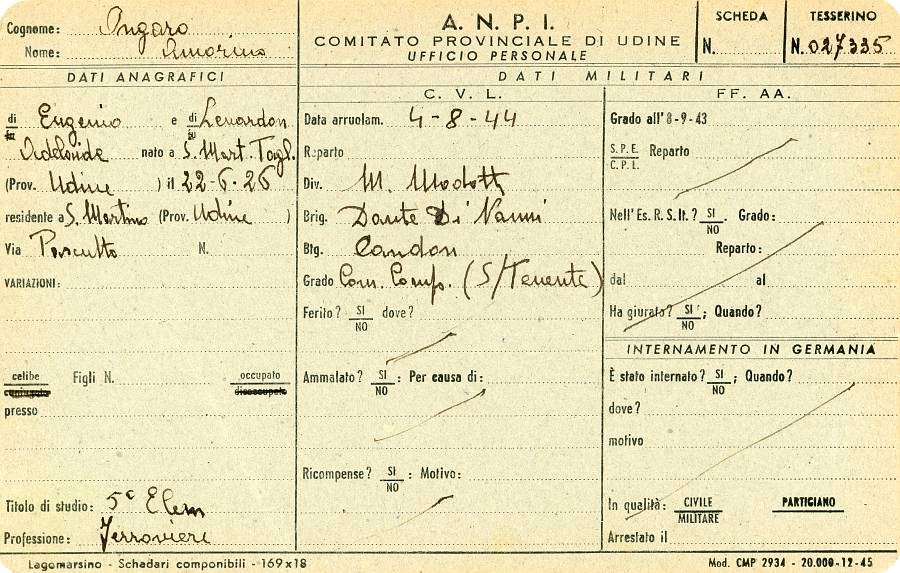 Cognome: Ongaro
Nome: Amorino
A. N. P. I.
COMITATO PROVINCIALE DI UDINE
UFFICIO PERSONALE
SCHEDA
N.
TESSERINO
N. 027335
DATI ANAGRAFICI
di Eugenio e di Lenardon
fu fu
Adelaide nato a S. Mart. Tagl.
(Prov. Udine ) il 22-6-26
residente a S. Martino (Prov. Udine )
Via N.
VARIAZIONI:
celibe Figli N. occupato
coniugato disoccupato
presso
Titolo di studio: 5ª Elem
Professione: Ferroviere
DATI MILITARI
C. V. L.
Data arruolam. 4-8-44
Reparto
Div. M. Modotti
Brig. Dante Di Nanni
Btg. Candon
Grado Com. Comp. (S/Tenente)
Ferito? SI dove?
NO
Ammalato? SI : Per causa di:
NO
Ricompense? SI : Motivo:
NO
FF. AA.
Grado all'8-9-43
S. P. E. Reparto
C. P. L.
Nell'Es. R. S. It.? SI . Grado:
NO
Reparto:
dal al
Ha giurato? SI ; Quando?
NO
INTERNAMENTO IN GERMANIA
È stato internato? SI ; Quando?
NO
dove?
motivo
In qualità: CIVILE PARTIGIANO
MILITARE
Arrestato il
Lagomarsino - Schedari componibili - 169x18
Mod. CMP 2934 - 20.000-12-45